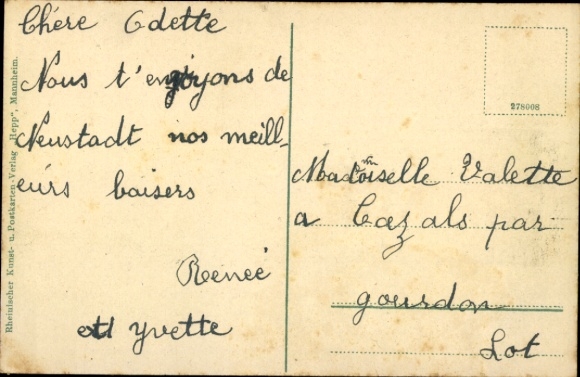 Chére Odette
Nous t'envoyons de
Neustadt nos meill-
eurs baisers
Renée
et Yvette
Mademoiselle Valette
a Cazals par
gourdon
Lot
278008
Rheinischer Kunst- u. Postkarten-Verlag „Hepp", Mannheim.